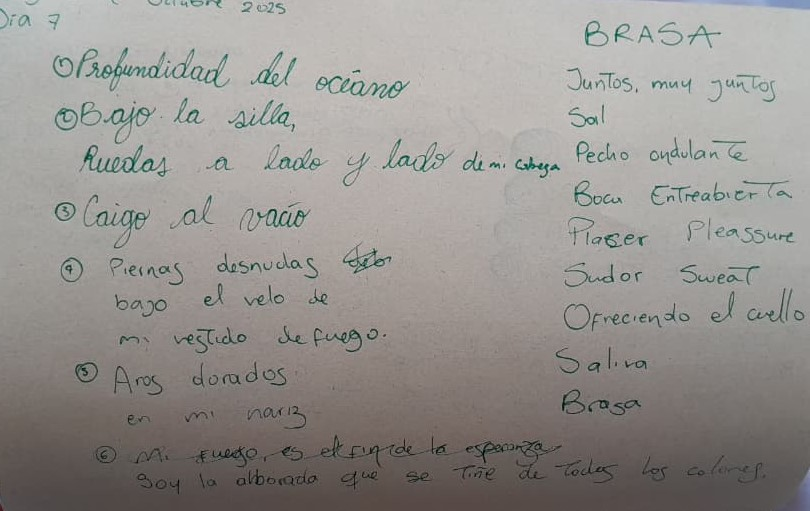 Día 7
Octubre 2025
① Profundidad del oceáno
② Bajo la silla,
Ruedas a lado y lado de mi cabeza
③ Caigo al vacio
④ Piernas desnudas
bajo el velo de
mi vestido de fuego.
⑤ Aros dorados
en mi nariz
⑥ Mi fuego, es el fin de la esperanza
Soy la alborada que se tiñe de todos los colores.
BRASA
Juntos, muy juntos
Sal
Pecho ondulante
Boca Entreabierta
Placer Pleassure
Sudor Sweat
Ofreciendo el cuello
Saliva
Brasa